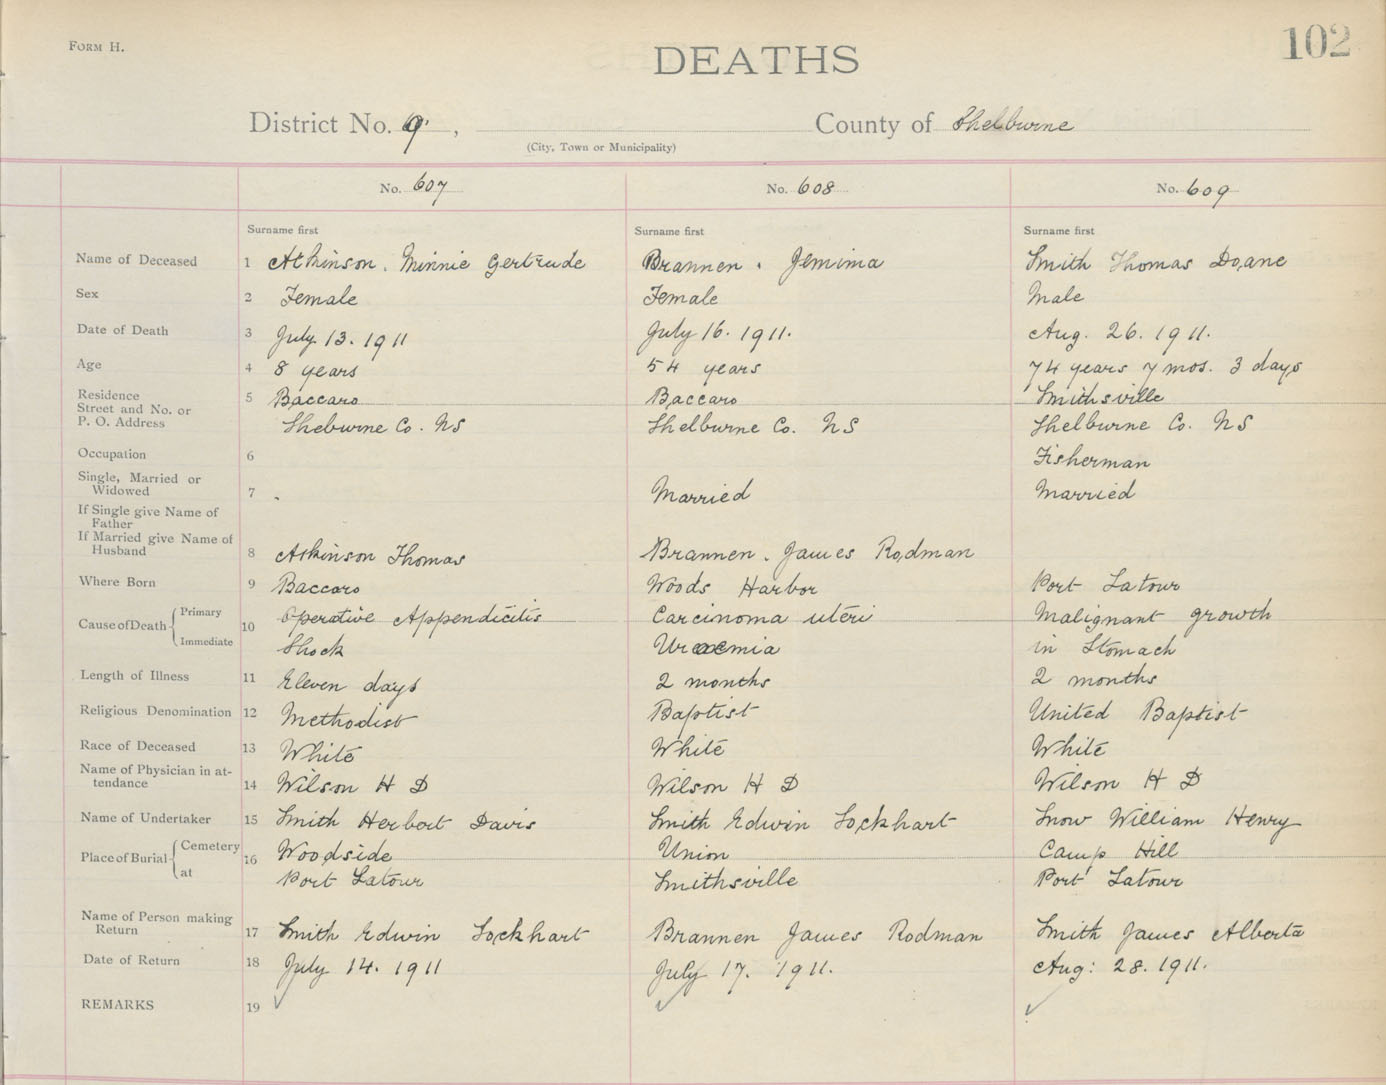 FORM H.
102
DEATHS
District No. 9, County of Shelburne
(City, Town or Municipality)
No. 607 No. 608 No. 609
Surname first Surname first Surname first
Name of Deceased 1 Atkinson. Minnie Gertrude Brannen. Jemima Smith Thomas Doane
Sex 2 Female Female Male
Date of Death 3 July. 13. 1911 July 16. 1911. Aug. 26. 1911.
Age 4 8 years 54 years 74 years 7 mos. 3 days
Residence 5 Baccaro Baccaro Smithsville
Street and No. or
P. O. Address Sheburne Co. NS Shelburne Co. NS Shelburne Co. NS
Occupation 6 Fisherman
Single, Married or
Widowed 7 Married Married
If Single give Name of
Father
If Married give Name of
Husband 8 Atkinson Thomas Brannen. James Rodman
Where Born 9 Baccaro Woods Harbor Port Latour
Cause of Death Primary 10 Operative Appendicitis Carcinoma uteri Malignant growth
Immediate Shock Uraemia in Stomach
Length of Illness 11 Eleven days 2 months 2 months
Religious Denomination 12 Methodist Baptist United Baptist
Race of Deceased 13 White White White
Name of Physician in at-
tendance 14 Wilson H D Wilson H D Wilson H D
Name of Undertaker 15 Smith Herbert Davis Smith Edwin Lockhart Snow William Henry
Place of Burial Cemetery 16 Woodside Union Camp Hill
at Port Latour Smithsville Port Latour
Name of Person making
Return 17 Smith Edwin Lockhart Brannen James Rodman Smith James Alberta
Date of Return 18 July 14. 1911 July 17. 1911. Aug: 28. 1911.
REMARKS 19 ✓ ✓ ✓